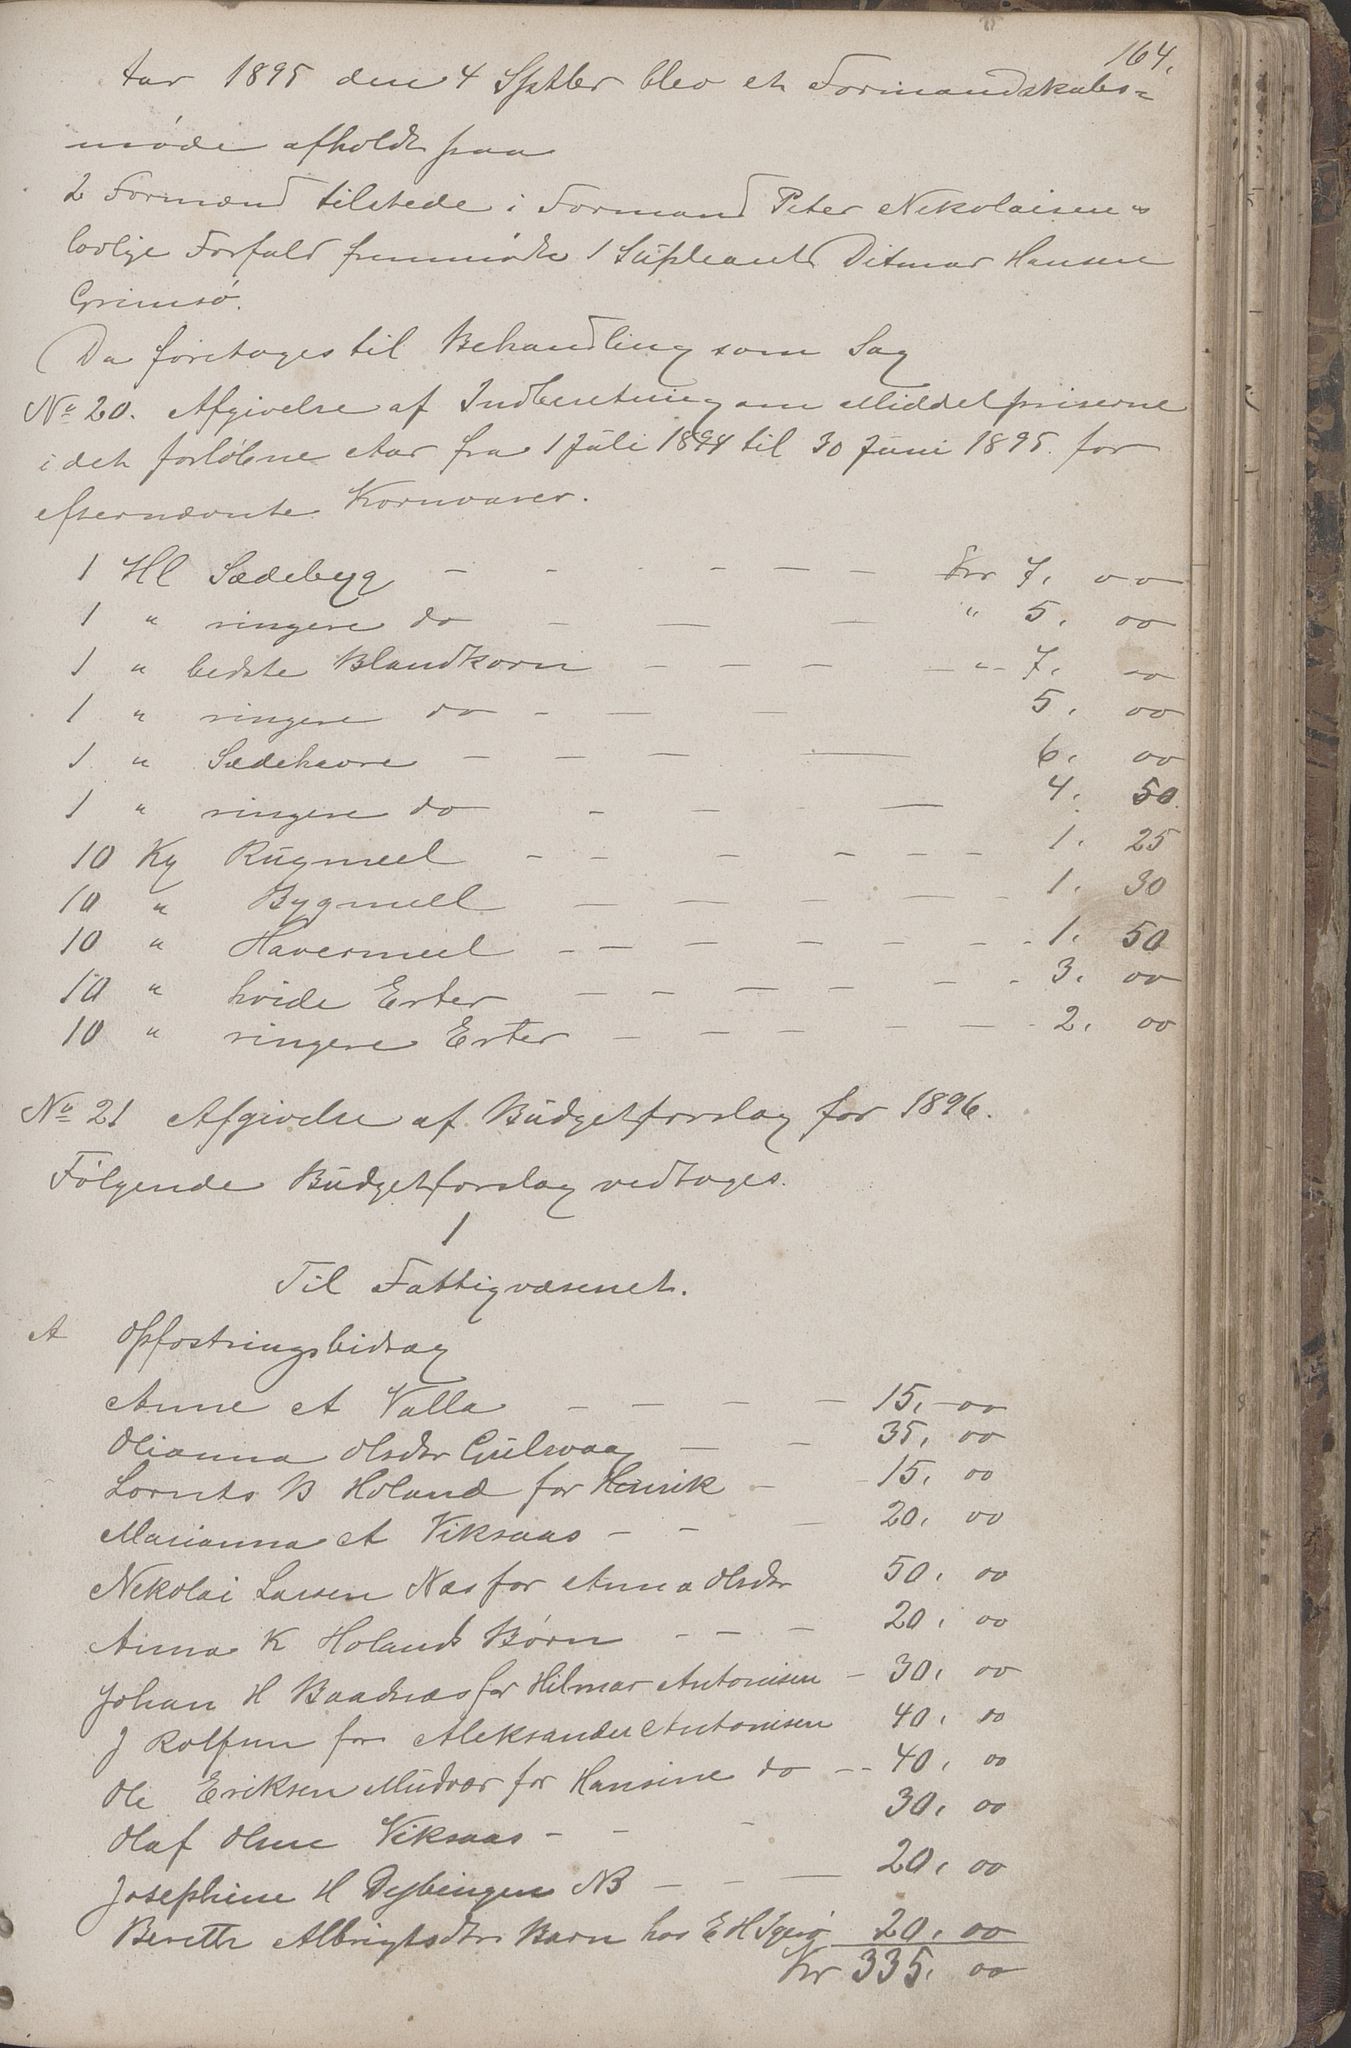 164.
Aar 1895 den 4 Sptbr blev et Formandskabs=
møde afholdt paa
2 Formænd tilstede i Formand Peter Nekolaisens
lovlige Forfald fremmødte 1 Supleant Ditmar Hansen
Grimsø.
Da foretoges til Behandling som Sag
No 20. Afgivelse af Indberetning om Middelpriserne
i det forløbne Aar fra 1 Juli 1894 til 30 Juni 1895 for
efternævnte Kornvarer.
1 Hl Sædebyg — - - - — — Kr 7, 00
1 " ringere do - — — " 5, 00
1 " bedste Blandkorn — — — — " 7, 00
1 " ringere do - — — 5, 00
1 " Sædehavre — — — — 6, 00
1 " ringere do - - — 4, 50
10 Kg Rugmeel - - - - - - 1, 25
10 " Bygmeel — — — — — - 1, 30
10 " Havermeel - — — — - - - 1, 50
10 " hvide Erter — — — — - - 3, 00
10 " ringere Erter - — — — — - 2, 00
No 21 Afgivelse af Budgetforslag for 1896.
Følgende Budgetforslag vedtoges.
1
Til Fattigvæsenet.
A Opfostringsbidrag
Anne A Valla — — — — 15, 00
Olianna Olsdtr Gulsvaag — - 35, 00
Lornts B Holand for Henrik - - 15, 00
Marianna A Viksaas - - - 20, 00
Nekolai Larsen Næs for Anna Olsdtr 50, 00
Anna K Holands Børn - - - 20, 00
Johan H Baadnæs for Hilmar Antonisen - 30, 00
J Rolfsen for Aleksander Antonisen 40, 00
Ole Eriksen Mudvær for Hansine do - - 40, 00
Olaf Olsen Viksaas - - - 30, 00
Josephine H Dybingen NB - - — 20, 00
Bereth Albrigtsdtr Barn hos E H 20, 00
Kr 335, 00